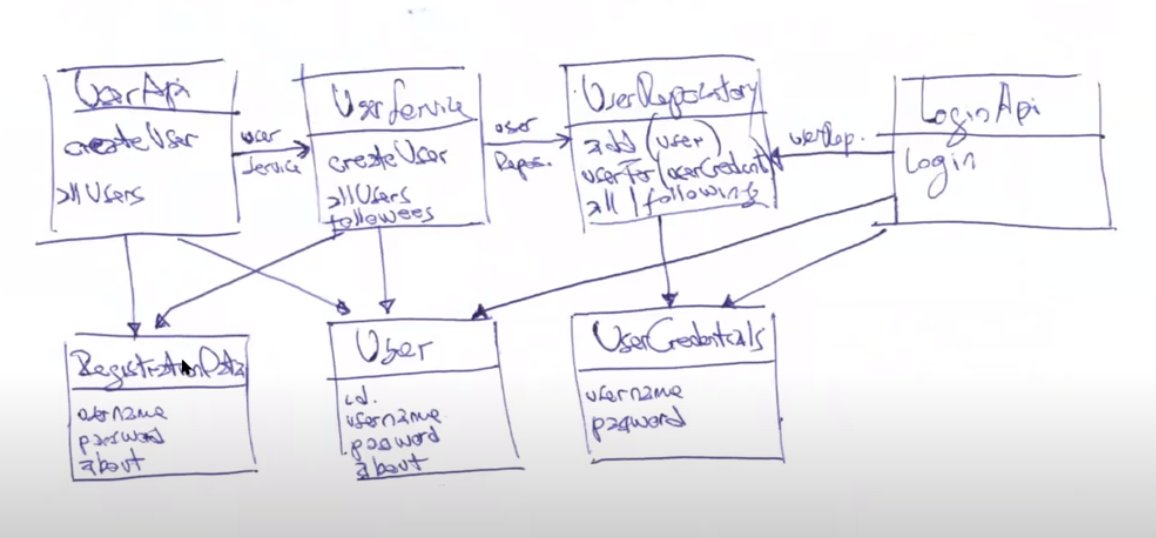 UserApi
createUser
allUsers
user
Service
UserService
createUser
allUsers
followees
user
Repos.
UserRepository
add (user)
userFor (userCredent
all | following
userRep.
LoginApi
login
RegistrationData
username
password
about
User
id.
username
password
about
UserCredentials
username
password